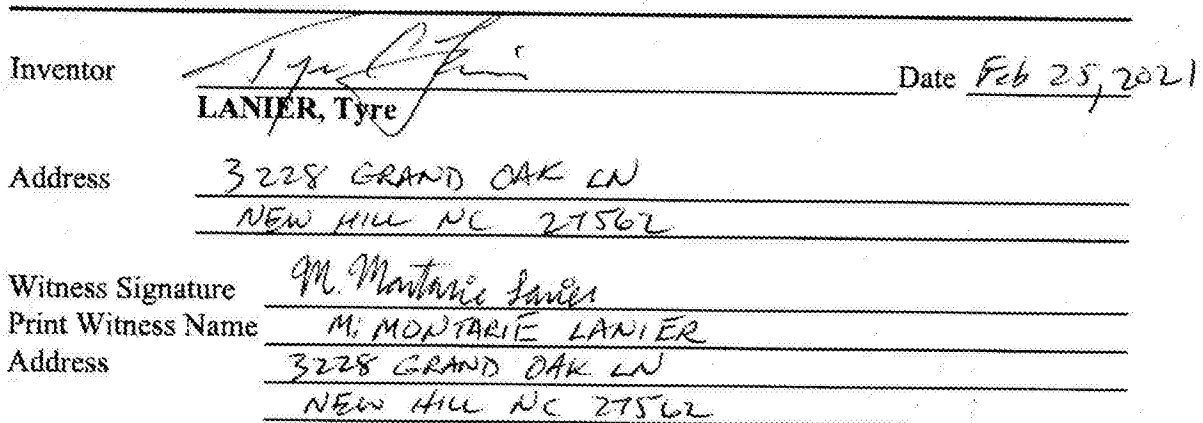 Inventor Date Feb 25, 2021
LANIER, Tyre
Address 3228 GRAND OAK LN
NEW HILL NC 27562
Witness Signature M. Montarie Lanier
Print Witness Name M. MONTARIE LANIER
Address 3228 GRAND OAK LN
NEW HILL NC 27562